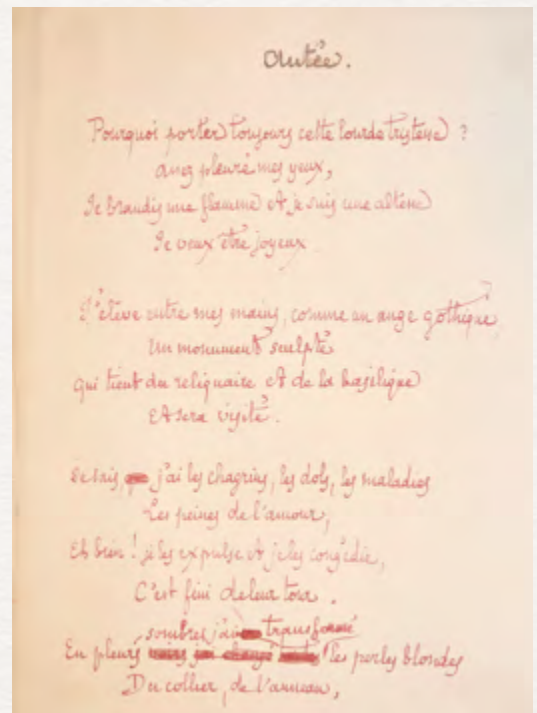 Antée.
Pourquoi porter toujours cette lourde tristesse ?
assez pleuré mes yeux,
Je brandis une flamme et je suis une altesse
Je veux être joyeux
J'élève entre mes mains, comme un ange gothique,
Un monument sculpté
qui tient du reliquaire et de la basilique
Et sera visité.
Je sais, j'ai les chagrins, les dols, les maladies
Les peines de l'amour,
Eh bien ! je les expulse et je les congédie,
C'est fini de leur tour.
sombres j'ai transformé
En pleurs les perles blondes
Du collier, de l'anneau,